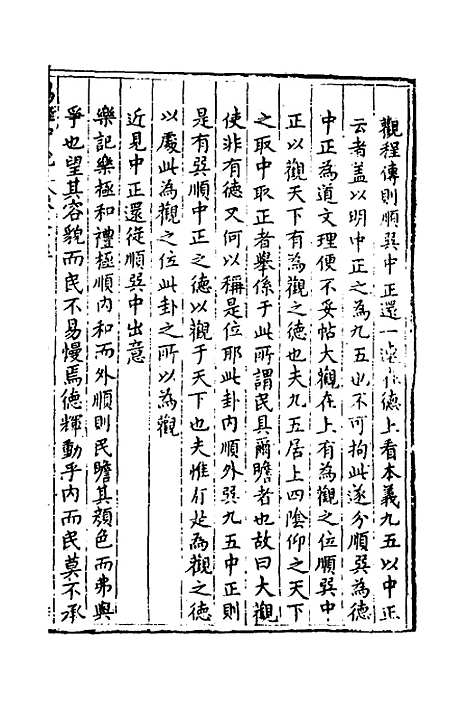 觀程傳則順巽中正還一滾作德上看本義九五以中正
云者蓋以明中正之為九五也不可拘此遂分順巽為德
中正為道文理便不妥帖大觀在上有為觀之位順巽中
正以觀天下有為觀之德也夫九五居上四陰仰之天下
之取中取正者舉係于此所謂民具爾瞻者也故曰大觀
使非有德又何以稱是位耶此卦内順外巽九五中正則
是有巽順中正之德以觀于天下也夫惟有是為觀之德
以處此為觀之位此卦之所以為觀
近見中正還從順巽中出意
樂記樂極和禮極順内和而外順則民瞻其顔色而弗與
爭也望其容貌而民不易慢焉德輝動乎内而民莫不承